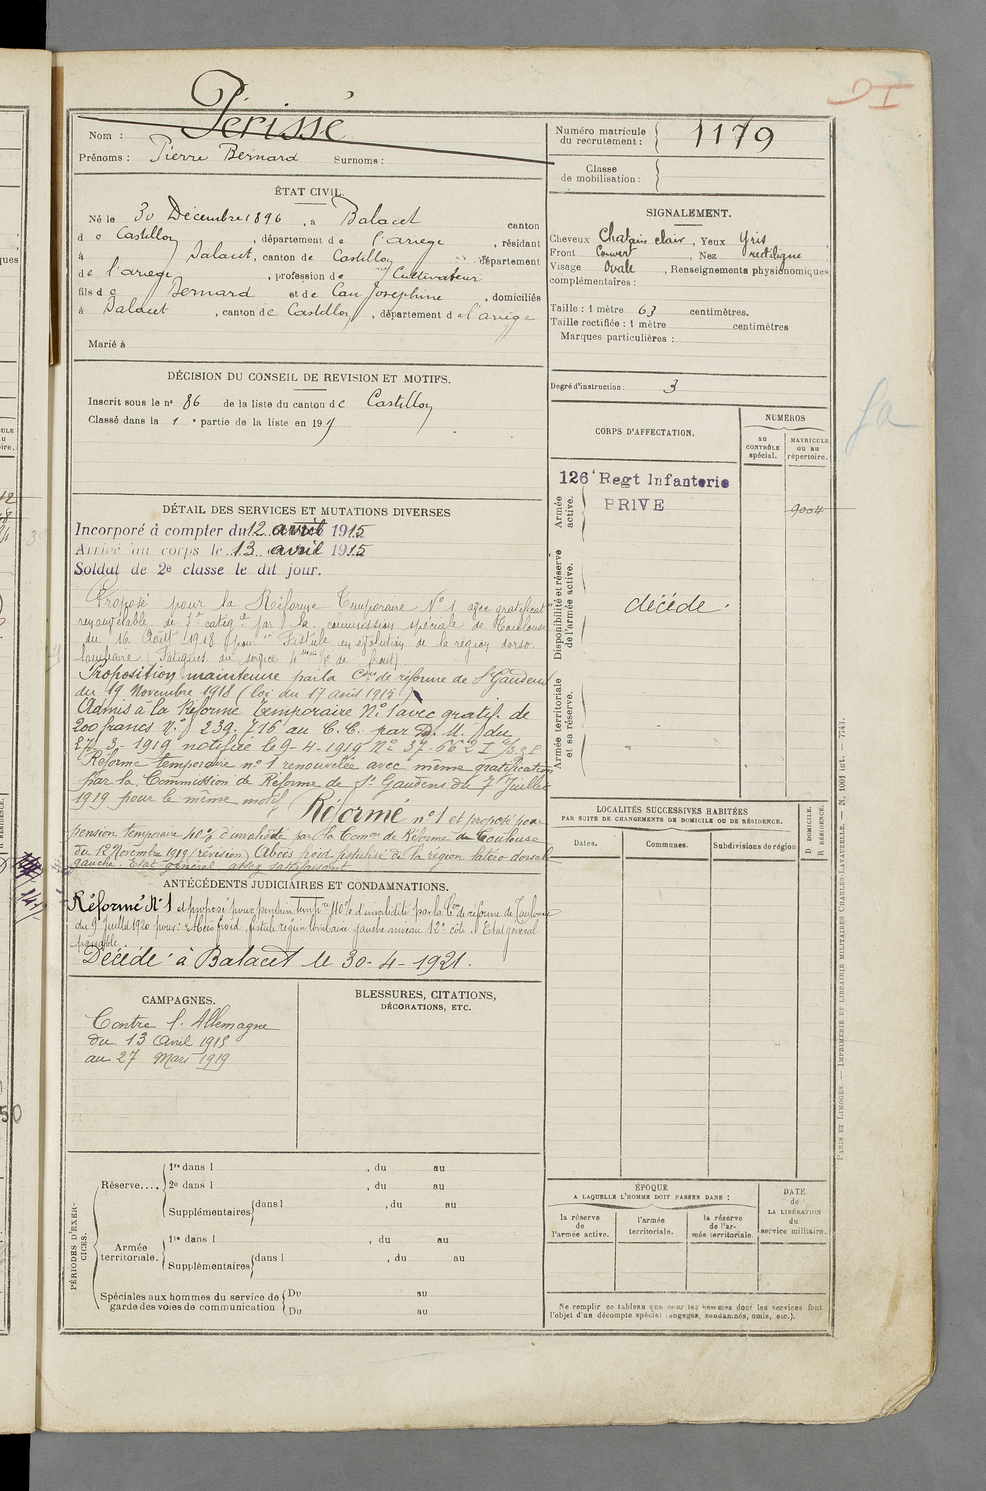 DI
Périssé
Nom :
Prénoms : Pierre Bernard Surnoms :
Numéro matricule
du recrutement : 1179
Classe
de mobilisation :
ÉTAT CIVIL.
Né le 30 Décembre 1896, à Balacet canton
de Castillon, département de l'ariege, résidant
à Balacet, canton de Castillon département
de l'ariege, profession de Cultivateur
fils de Bernard et de Cau Josephine, domiciliés
à Balacet, canton de Castillon, département de l'ariège
Marié à
SIGNALEMENT.
Cheveux Chatain clair, Yeux Gris
Front Couvert, Nez rectiligne
Visage Ovale, Renseignements physionomiques
complémentaires :
Taille : 1 mètre 63 centimètres.
Taille rectifiée : 1 mètre centimètres
Marques particulières :
Degré d'instruction : 3
DÉCISION DU CONSEIL DE REVISION ET MOTIFS.
Inscrit sous le n° 86 de la liste du canton de Castillon
Classé dans la 1e partie de la liste en 191
CORPS D'AFFECTATION.
NUMÉROS
au
CONTRÔLE
spécial.
MATRICULE
ou au
répertoire.
Armée
active.
126e Regt Infanterie
BRIVE
9004
Disponibilité et réserve
de l'armée active.
décédé.
Armée territoriale
et sa réserve.
DÉTAIL DES SERVICES ET MUTATIONS DIVERSES
Incorporé à compter du 12 avril 1915
Arrivé au corps le 13 avril 1915
Soldat de 2e classe le dit jour.
Proposé pour la Réforme Temporaire N° 1 avec gratificat
renouvelable de 7e catégie par la commission spéciale de Toulouse
du 16 Août 1918 pour "Fistule en évolution de la région dorso
lombaire (Fatigues du service 4 mois de front)
Proposition maintenue par la Con de réforme de St Gaudens
du 19 Novembre 1918 (loi du 17 avril 1915)
Admis à la Réforme Temporaire N° 1 avec gratif. de
200 francs N° 239.716 au C.C. par D. M. du
27-3-1919 notifiée le 9-4-1919 N°
Réforme temporaire n° 1 renouvelée avec même gratification
par la Commission de Réforme de St Gaudens du 7 Juillet
1919 pour le même motif Réformé n° 1 et proposé pour
pension temporaire 40% d'invalidité par la Comon de Réforme de Toulouse
du 12 Novembre 1919 (révision) Abcès froid fistulisé de la région latéro dorsale
gauche. Etat général assez satisfaisant
ANTÉCÉDENTS JUDICIAIRES ET CONDAMNATIONS.
Réformé N° 1 et proposé pour pension tempre 110% d'invalidité par la Con de réforme de Toulouse
du 9 juillet 1920 pour : Abcès froid, fistule région lombaire gauche niveau 12e côte. Etat général
passable.
Décédé à Balacet le 30-4-1921.
LOCALITÉS SUCCESSIVES HABITÉES
PAR SUITE DE CHANGEMENTS DE DOMICILE OU DE RÉSIDENCE.
Dates.
Communes.
Subdivisions de région
D DOMICILE.
R RÉSIDENCE.
CAMPAGNES.
Contre l'Allemagne
du 13 Avril 1915
au 27 Mars 1919
BLESSURES, CITATIONS,
DÉCORATIONS, ETC.
PÉRIODES D'EXER-
CICES.
Réserve....
1re dans l , du au
2e dans l , du au
Supplémentaires dans l , du au
Armée
territoriale.
1re dans l , du au
Supplémentaires dans l , du au
Spéciales aux hommes du service de
garde des voies de communication
Du au
Du au
ÉPOQUE
A LAQUELLE L'HOMME DOIT PASSER DANS :
la réserve
de
l'armée active.
l'armée
territoriale.
la réserve
de l'ar-
mée territoriale.
DATE
de
LA LIBÉRATION
du
service militaire.
Ne remplir ce tableau que pour les hommes dont les services font
l'objet d'un décompte spécial (engagés, condamnés, omis, etc.).
PARIS ET LIMOGES. — IMPRIMERIE ET LIBRAIRIE MILITAIRES CHARLES-LAVAUZELLE. — N. 1001 bis. — 7743.